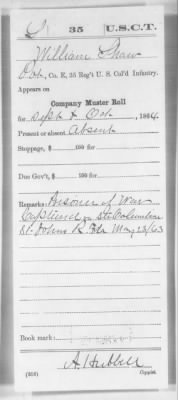 S 35 U.S.C.T.
William Shaw
Pvt., Co. E, 35 Reg't U. S. Col'd Infantry.
Appears on
Company Muster Roll
for Sept & Oct, 1864
Present or absent Absent
Stoppage, $ 100 for
Due Gov't, $ 100 for
Remarks: Prisoner of War
Captured on Str Columbine
St. Johns R. Fla May 23/63
Book mark:
A. Hubbell
(358) Copyist.